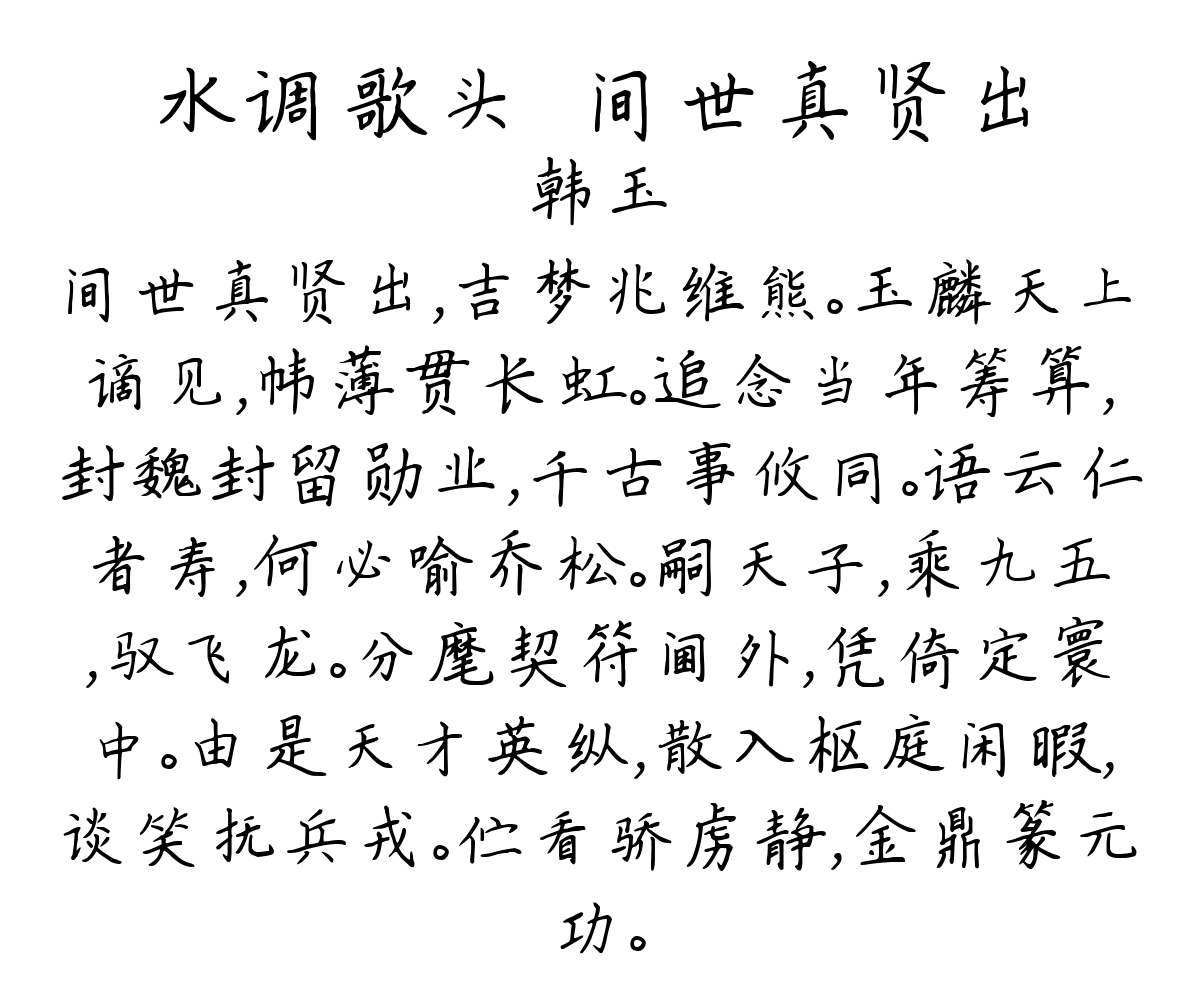 水调歌头 间世真贤出
韩玉
间世真贤出,吉梦兆维熊。玉麟天上
谪见,帏薄贯长虹。追念当年筹算,
封魏封留勋业,千古事攸同。语云仁
者寿,何必喻乔松。嗣天子,乘九五
,驭飞龙。分麾契符阃外,凭倚定寰
中。由是天才英纵,散入枢庭闲暇,
谈笑抚兵戎。伫看骄虏静,金鼎篆元
功。